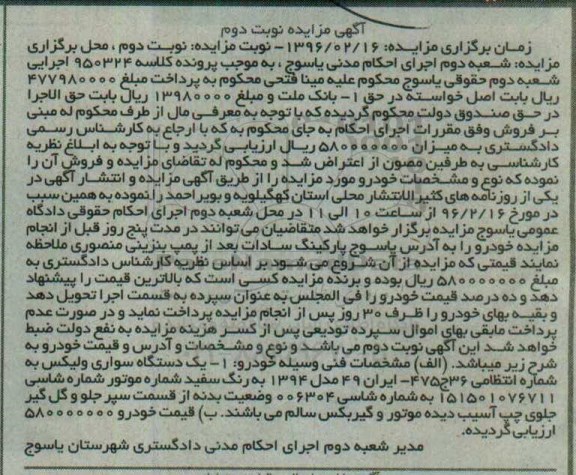 آگهی مزایده نوبت دوم
زمان برگزاری مزایده: ۱۳۹۶/۰۲/۱۶- نوبت مزایده: نوبت دوم ، محل برگزاری
مزایده: شعبه دوم اجرای احکام مدنی یاسوج ، به موجب پرونده کلاسه ۹۵۰۳۲۴ اجرایی
شعبه دوم حقوقی یاسوج محکوم علیه مینا فتحی محکوم به پرداخت مبلغ ۴۷۷۹۸۰۰۰۰
ریال بابت اصل خواسته در حق ۱- بانک ملت و مبلغ ۱۳۹۸۰۰۰۰ ریال بابت حق الاجرا
در حق صندوق دولت محکوم گردیده که با توجه به معرفی مال از طرف محکوم له مبنی
بر فروش وفق مقررات اجرای احکام به جای محکوم به که با ارجاع به کارشناس رسمی
دادگستری به میزان ۵۸۰۰۰۰۰۰۰ ریال ارزیابی گردید و با توجه به ابلاغ نظریه
کارشناسی به طرفین مصون از اعتراض شد و محکوم له تقاضای مزایده و فروش آن را
نموده که نوع و مشخصات خودرو مورد مزایده را از طریق آگهی مزایده و انتشار آگهی در
یکی از روزنامه های کثیرالانتشار محلی استان کهگیلویه و بویراحمد را نموده به همین سبب
در مورخ ۹۶/۲/۱۶ از ساعت ۱۰ الی ۱۱ در محل شعبه دوم اجرای احکام حقوقی دادگاه
عمومی یاسوج مزایده برگزار خواهد شد متقاضیان می توانند در مدت پنج روز قبل از انجام
مزایده خودرو را به آدرس یاسوج پارکینگ سادات بعد از پمپ بنزینی منصوری ملاحظه
نمایند قیمتی که مزایده از آن شروع می شود بر اساس نظریه کارشناس دادگستری به
مبلغ ۵۸۰۰۰۰۰۰۰ ریال بوده و برنده مزایده کسی است که بالاترین قیمت را پیشنهاد
دهد و ده درصد قیمت خودرو را فی المجلس به عنوان سپرده به قسمت اجرا تحویل دهد
و بقیه بهای خودرو را ظرف ۳۰ روز پس از انجام مزایده پرداخت نماید و در صورت عدم
پرداخت مابقی بهای اموال سپرده تودیعی پس از کسر هزینه مزایده به نفع دولت ضبط
خواهد شد این آگهی نوبت دوم می باشد و نوع و مشخصات و آدرس و قیمت خودرو به
شرح زیر میباشد. (الف) مشخصات فنی وسیله خودرو: ۱- یک دستگاه سواری ولیکس به
شماره انتظامی ۳۶ج۴۷۵- ایران ۴۹ مدل ۱۳۹۴ به رنگ سفید شماره موتور شماره شاسی
۱۵۱۵۰۱۰۷۶۷۱۱ به شماره شاسی ۰۰۶۳۰۴ وضعیت بدنه از قسمت سپر جلو و گل گیر
جلوی چپ آسیب دیده موتور و گیربکس سالم می باشند. ب) قیمت خودرو ۵۸۰۰۰۰۰۰۰
ارزیابی گردیده.
مدیر شعبه دوم اجرای احکام مدنی دادگستری شهرستان یاسوج